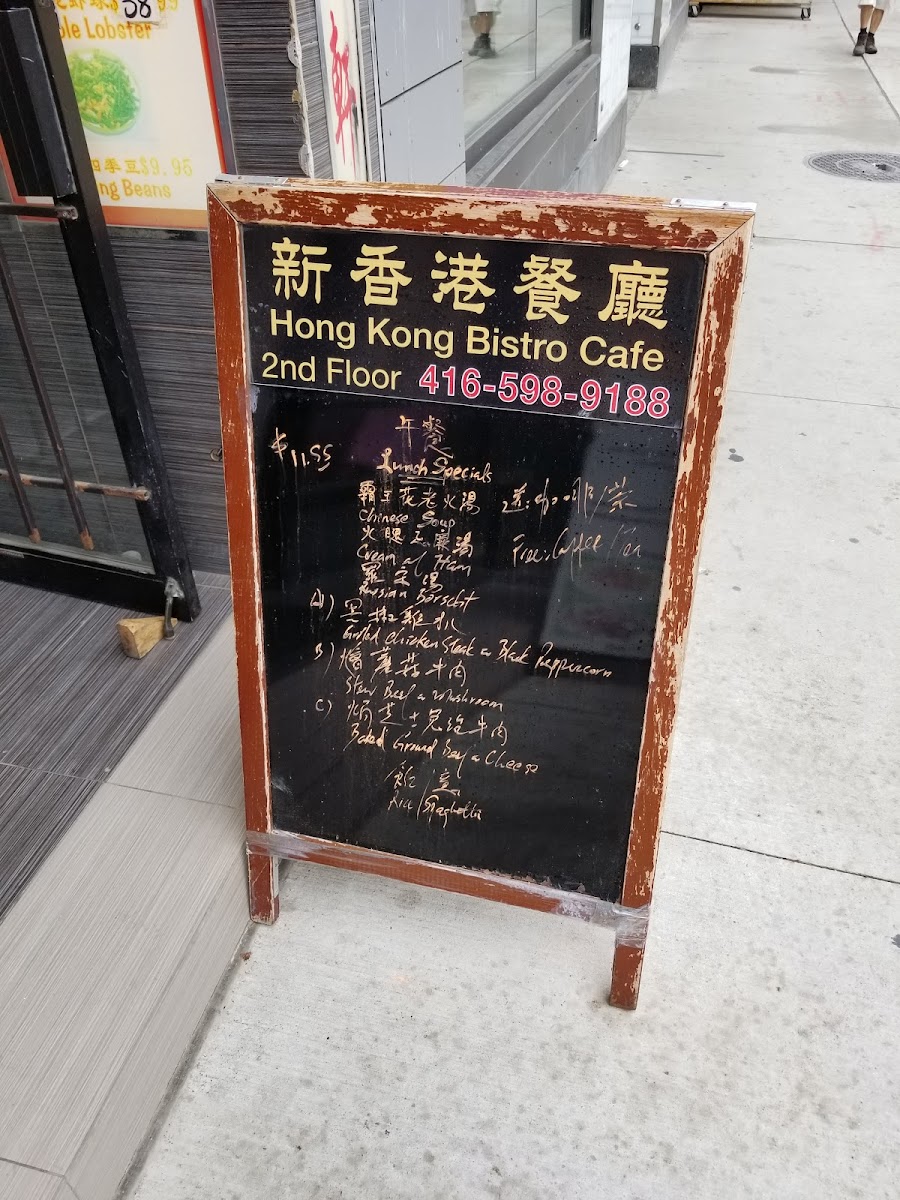 38
ble Lobster
四季豆$9.95
ng Beans
新香港餐廳
Hong Kong Bistro Cafe
2nd Floor 416-598-9188
午餐
$11.95
Lunch Specials
霸王花老火湯
Chinese Soup
火腿忌廉湯
Cream of Ham
羅宋湯
Russian Borscht
送:咖啡/茶
Free: Coffee/Tea
A) 黑椒雞扒
Grilled Chicken Steak w Black Peppercorn
B) 燴蘑菇牛肉
Stew Beef w mushroom
C) 焗芝士免治牛肉
Baked Ground Beef w Cheese
飯/意
Rice/Spaghetti